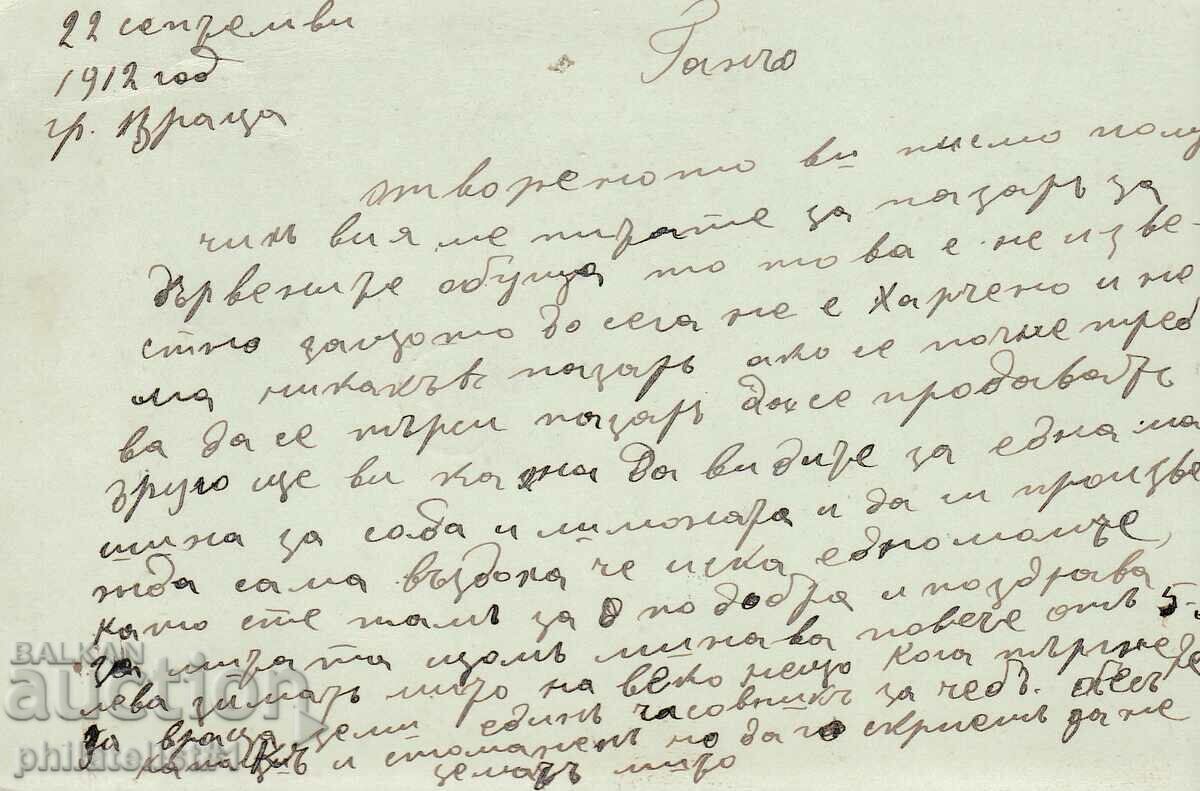 22 септемви
1912 год
гр. Враца
Ганчо
твореното ви писмо полу
чихъ вия ме питате за пазаръ за
дървените обуща то това е не изве-
стно защото до сега не е харчено и не
ма никакъвъ пазаръ ако се почне треб
ва да се търси пазаръ да се продаватъ
друго ще ви кажа да видите за една ма
шина за сода и лимоната и да ги произве
жда сама въздоха че иска едномомче
като сте тамъ за по добра и поздрава
за митата щомъ минава повече отъ 5-
лева зиматъ мито на веко нещо кога тър
за враца земи единъ часовникъ за чебъ.
капацъ и стоманенъ но да го скриешъ да не
зематъ мито
BALKAN
auction
philatelist